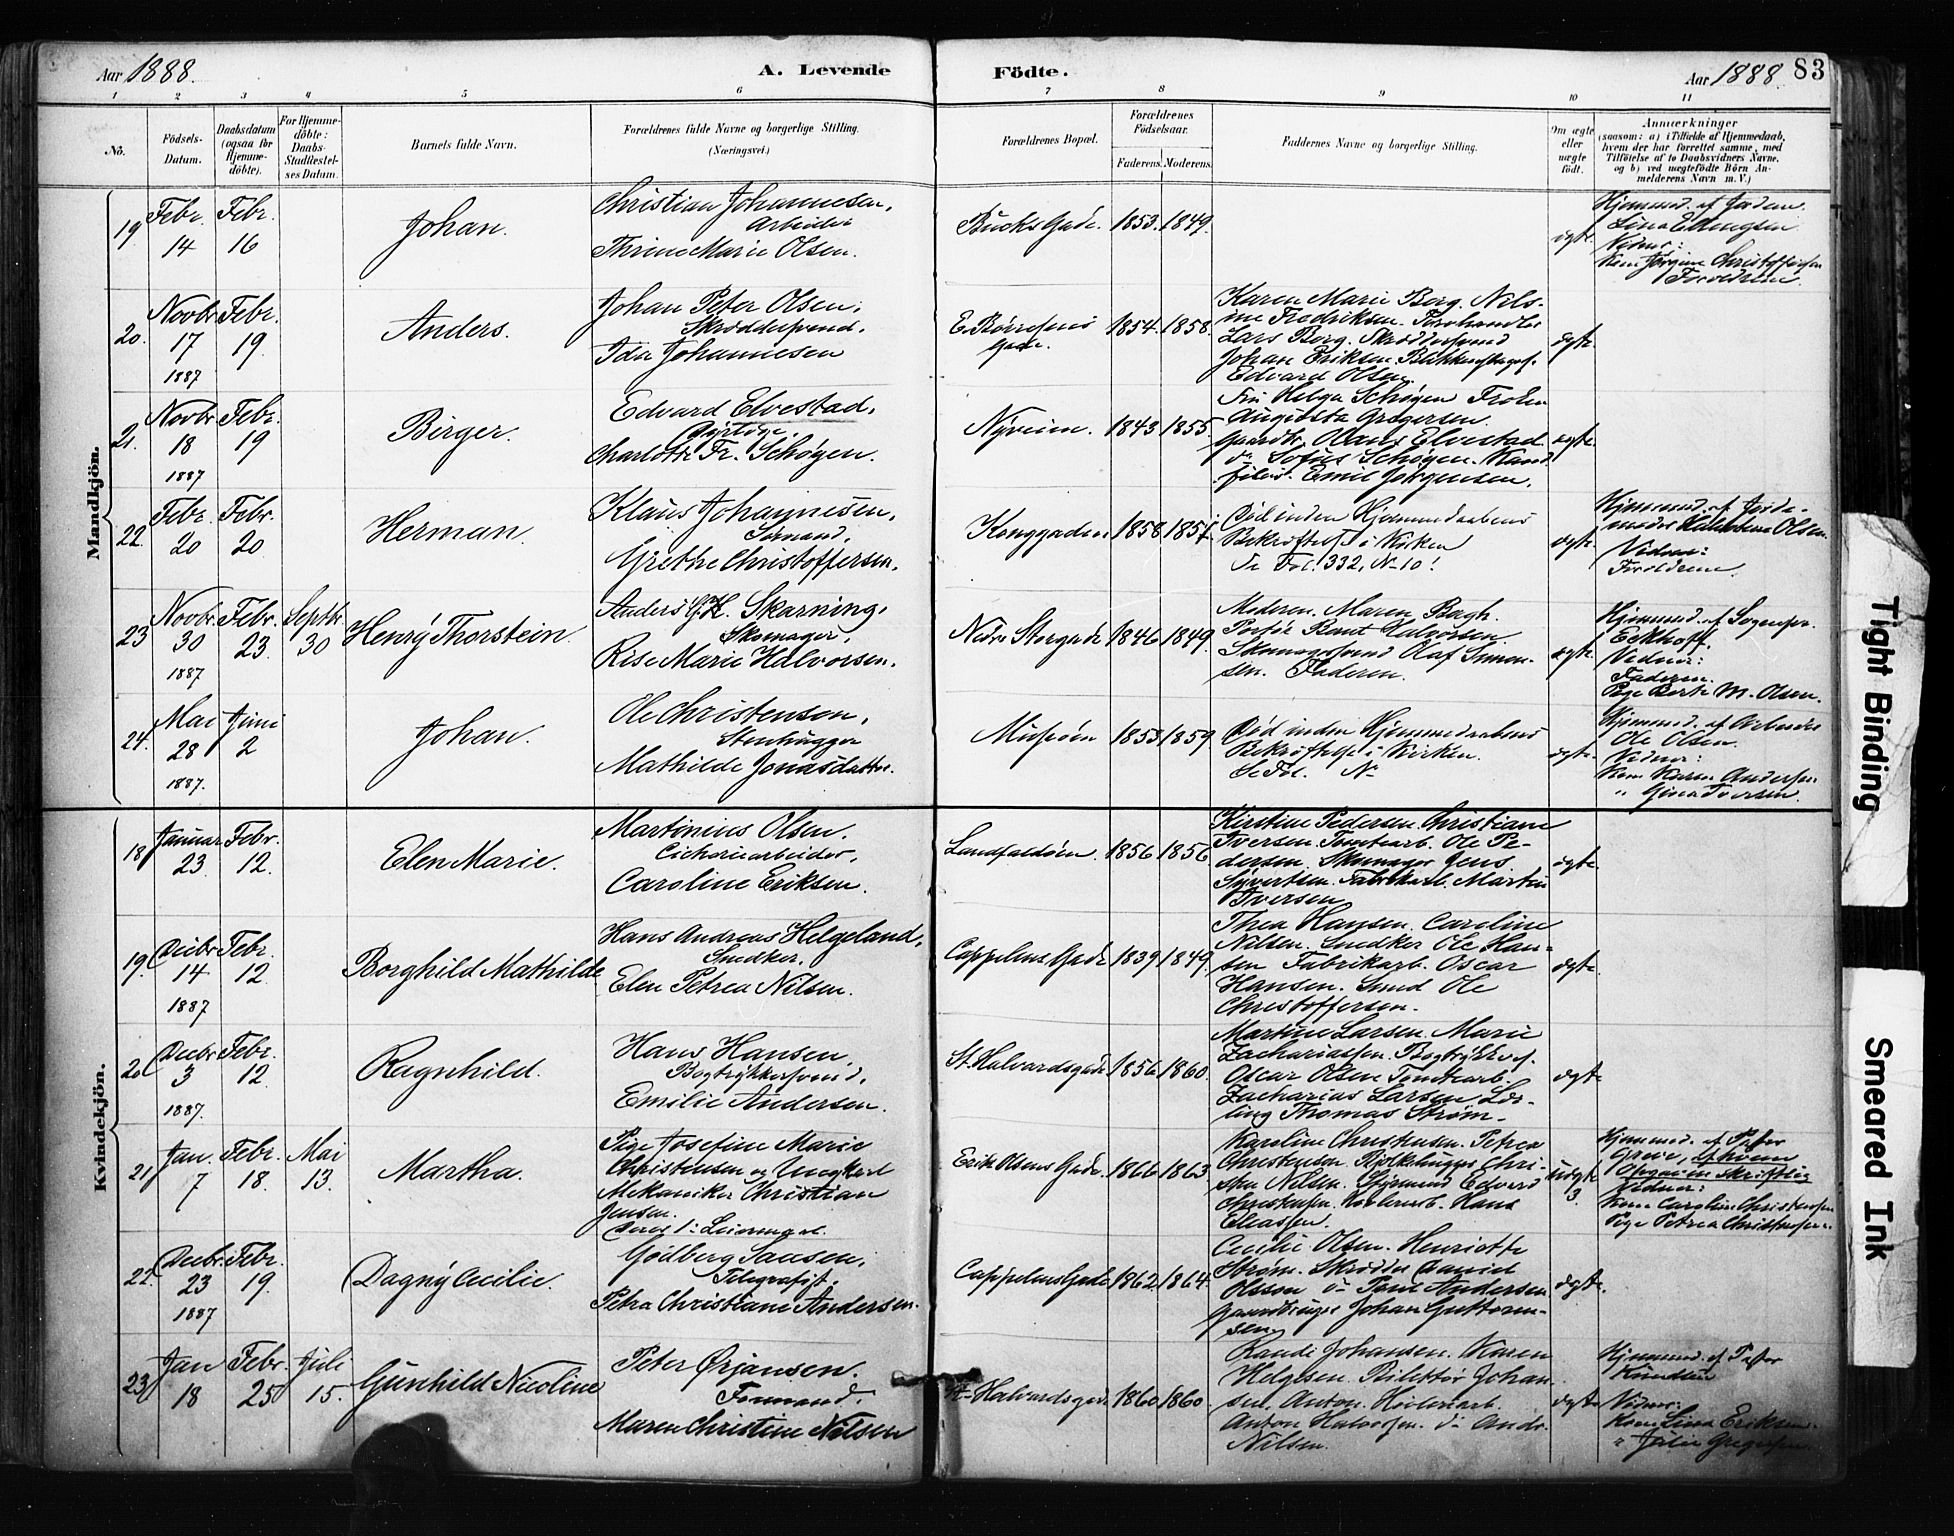 Aar 1888. A. Levende Födte. Aar 1888. 83
1 2 3 4 5 6 7 8 9 10 11
No.
Födsels-Datum.
Daabsdatum (ogsaa for Hjemme-döbte).
For Hjemme-döbte: Daabs-Stadfæstel-ses Datum.
Barnets fulde Navn.
Forældrenes fulde Navne og borgerlige Stilling. (Næringsvei.)
Forældrenes Bopæl.
Forældrenes Födselsaar.
Faderens. Moderens.
Faddernes Navne og borgerlige Stilling.
Om ægte eller uægte födt.
Anmærkninger
(saasom: a) i Tilfælde af Hjemmedaab, hvem der har forrettet samme, med Tilföielse af to Daabsvidners Navne, og b) ved uægtefödte Börn An-melderens Navn m. V.)
Mandkjön.
19 Febr. 14 Febr. 16
Johan.
Christian Johannesen,
Arbeider
Thrine Marie Olsen.
Bucks Gade. 1853. 1849.
ægte.
Hjemmed. af Jordem.
Vidner:
Kone Jørgine Christoffersen
Forældrene.
20. Novbr. 17 1887 Febr. 19.
Anders.
Johan Peter Olsen,
Skræddersvend.
Ida Johannesen
E. Børresens Gade. 1854. 1858.
Karen Marie Berg. Nils-
ine Fredriksen.
Lars Berg. Skræddersvend
Johan Eriksen.
Edvard Olsen.
ægte.
21. Novbr. 18 1887 Febr. 19
Birger.
Edvard Elvestad,
Charlotte Fr. Schøyen.
Nyveien. 1843 1855.
Fru Helga Schøyen Frøken
Augusta Gregersen.
Gaardbr. Olaus Elvestad.
do Sofus Schøyen. Kand.
filos. Emil Jørgensen.
ægte.
22. Febr. 20 Febr. 20
Herman.
Klaus Johannesen,
Sømand,
Grethe Christoffersen,
Konggaden. 1858
Død inden Hjemmedaabens
Bekræftelse i Kirken
Se Fol. 332, No 10!
ægte.
Hjemmed. af Jorde-
Olsen.
Vidner:
Forældrene.
23 Novbr. 30 1887 Febr. 23. Septbr. 30
Henry Thorstein.
Anders G. H. Skarning,
Skomager.
Rise Marie Halvorsen.
Nedre Storgade 1846 1849.
Moderen. Maren Bagh.
Halvorsen.
Skomagersvend Olaf Simon-
sen. Faderen.
ægte.
Hjemmed. af Sognepr.
Eckhoff.
Vidner:
Faderen.
Pige Berte M. Olsen.
24. Mai 28 1887. Juni 2
Johan.
Ole Christensen,
Stenhugger
Mathilde Jonasdatter.
Muusøen 1855 1859
Død inden Hjemmedaabens
Bekræftelse i Kirken.
Se Fol. No
ægte.
Hjemmed. af Arbeider
Ole Olsen.
Vidner:
Kone Karen Andersen
" Gina Iversen.
Kvindekjön.
18 Januar 23. Febr. 12.
Elen Marie.
Martinius Olsen.
Cichoriearbeider,
Caroline Eriksen.
Landfaldøen. 1856 1856.
Kirstine Pedersen. Christiane
Iversen. Tomtearb. Ole Pe-
dersen. Skomager Jens
Syvertsen. Fabrikarb. Martin
Iversen.
ægte.
19. Decbr. 14 1887 Febr. 12.
Borghild Mathilde
Hans Andreas Helgeland,
Snedker.
Elen Petrea Nilsen.
Cappelens Gade 1839 1849.
Thea Hansen. Caroline
Nilsen. Snedker Ole Han-
sen Fabrikarb. Oscar
Hansen. Smed Ole
Christoffersen.
ægte.
20 Decbr. 3 1887. Febr. 12.
Ragnhild.
Hans Hansen,
Bogtrykkersvend,
Emilie Andersen.
St. Halvardsgade 1856 1860.
Martine Larsen. Marie
Zachariassen. Bogtrykkers.
Oscar Olsen Tomtearb.
Zacharias Larsen Lær-
ling Thomas Strøm.
ægte
21, Jan. 7 Febr. 18. Mai 13.
Martha.
Pige Josefine Marie
Christensen og Ungkarl
Mekaniker Christian
Jensen.
Deres 1ste Leiermaal.
Erik Olsens Gade. 1866 1863.
Karoline Christensen. Petrea
Christensen. Chri-
stian Nilsen. Edvard
Christensen. Høvleriarb. Hans
Eliassen.
uægte
3
Hjemmed. af Pastor
Greve,
Vidner:
Kone Caroline Christensen
Pige Petrea Christensen.
22. Decbr. 23 1887 Febr. 19.
Dagny Cecilie.
Godberg Sansen,
Telegrafist.
Petra Christiane Andersen.
Cappelens Gade 1862 1864.
Cecilie Olsen. Henriette
Strøm. Skrædder Daniel
Olsson do Andersen
Gaardbruger Johan Guttorm-
sen.
ægte.
23. Jan 18 Febr. 25. Juli 15.
Gunhild Nicoline
Peter Ørjansen.
Formand.
Maren Christine Nilsen
St. Halvardsgade 1860 1860.
Randi Johansen. Karen
Helgesen. Billettør Johan-
sen. Anton. Høvleriarb.
Anton Halvorsen. do Andr.
Nilsen.
ægte
Hjemmed. af Pastor
Knudsen
Vidner:
Kone Lina Eriksen.
" Julie Gregersen.
Tight Binding
Smeared Ink